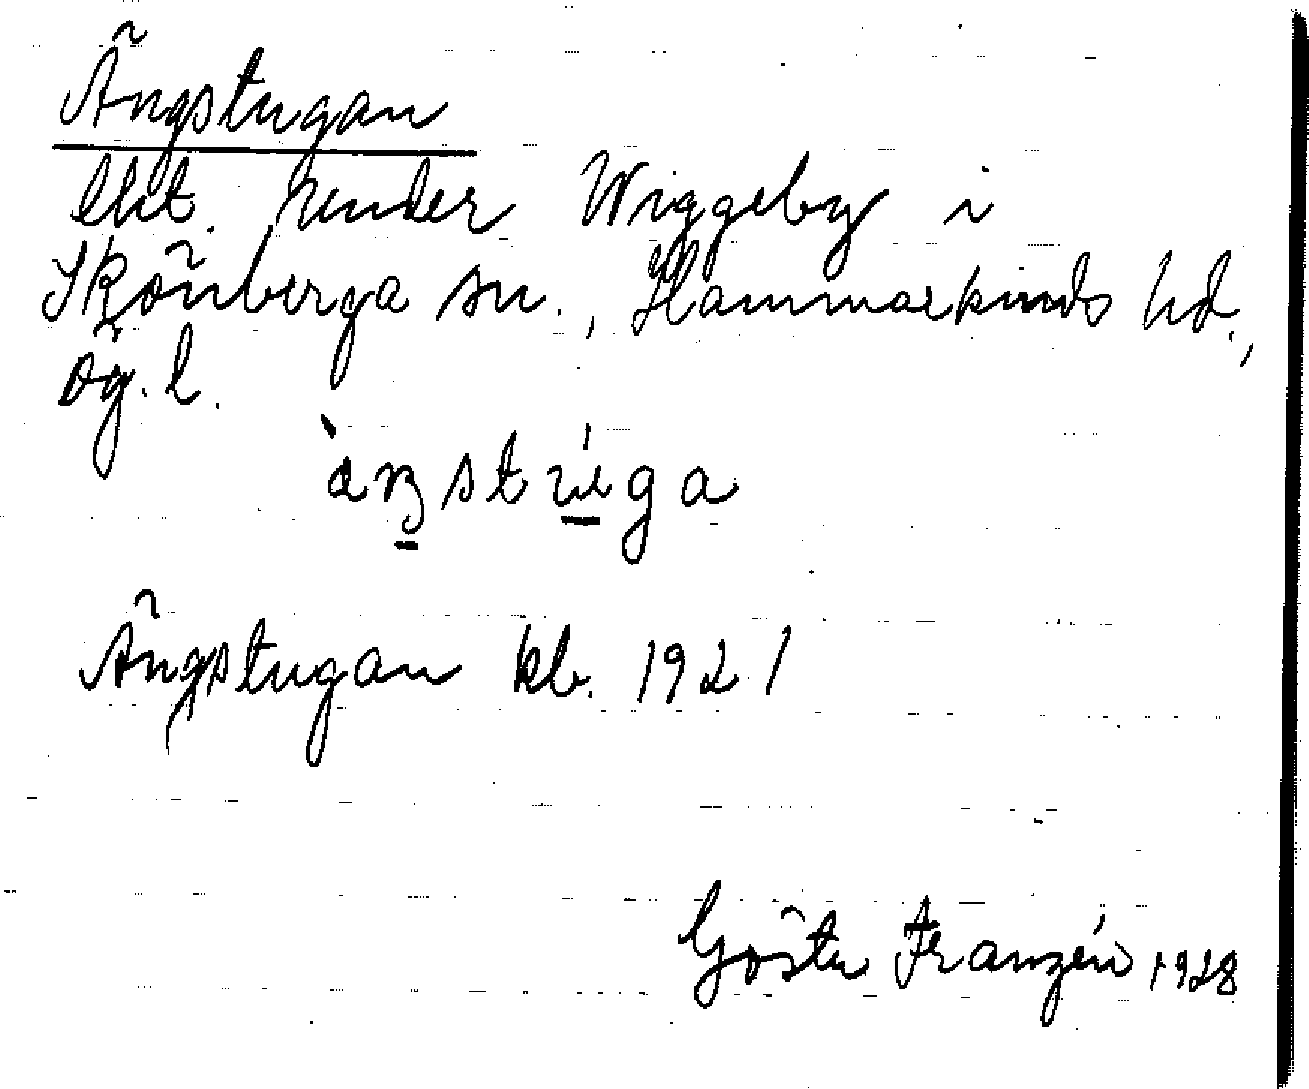 Ängstugan
lht. under Wiggeby i
Skönberga sn., Hammarkinds hd.,
Ög. l.
Ängstugan kb. 1921
Gösta Franzén 1928